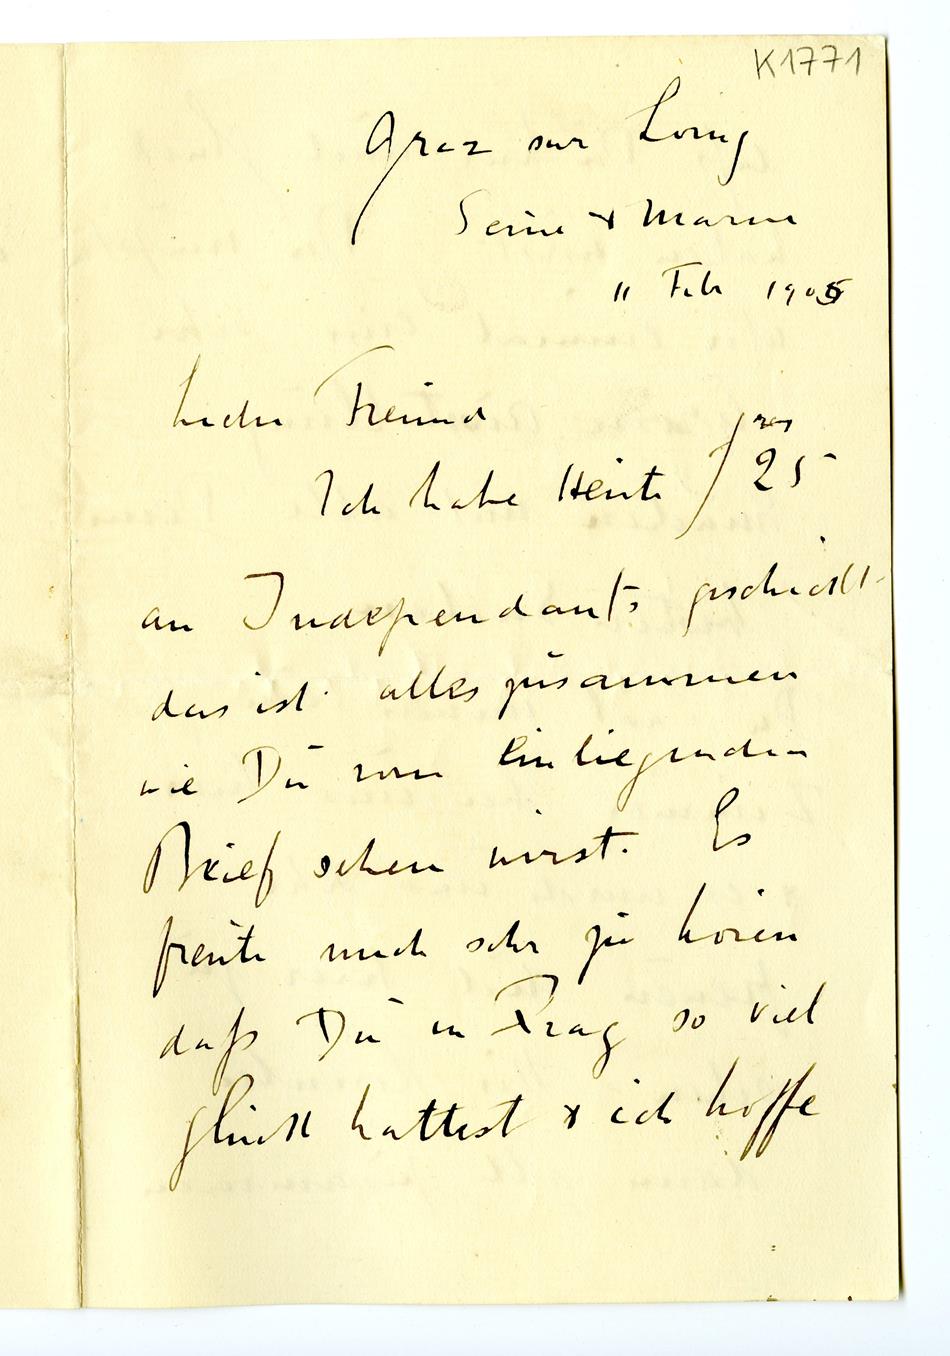 K1771
Grez sur Loing
Seine & Marne
11 Feb 1905
Lieber Freund
Ich habe Heute frcs 25
an Independants geschickt
das ist alles zusammen
wie Du vom Einliegenden
Brief sehen wirst. Es
freute mich sehr zu hören
daß Du in Prag so viel
Glück hattest & ich hoffe